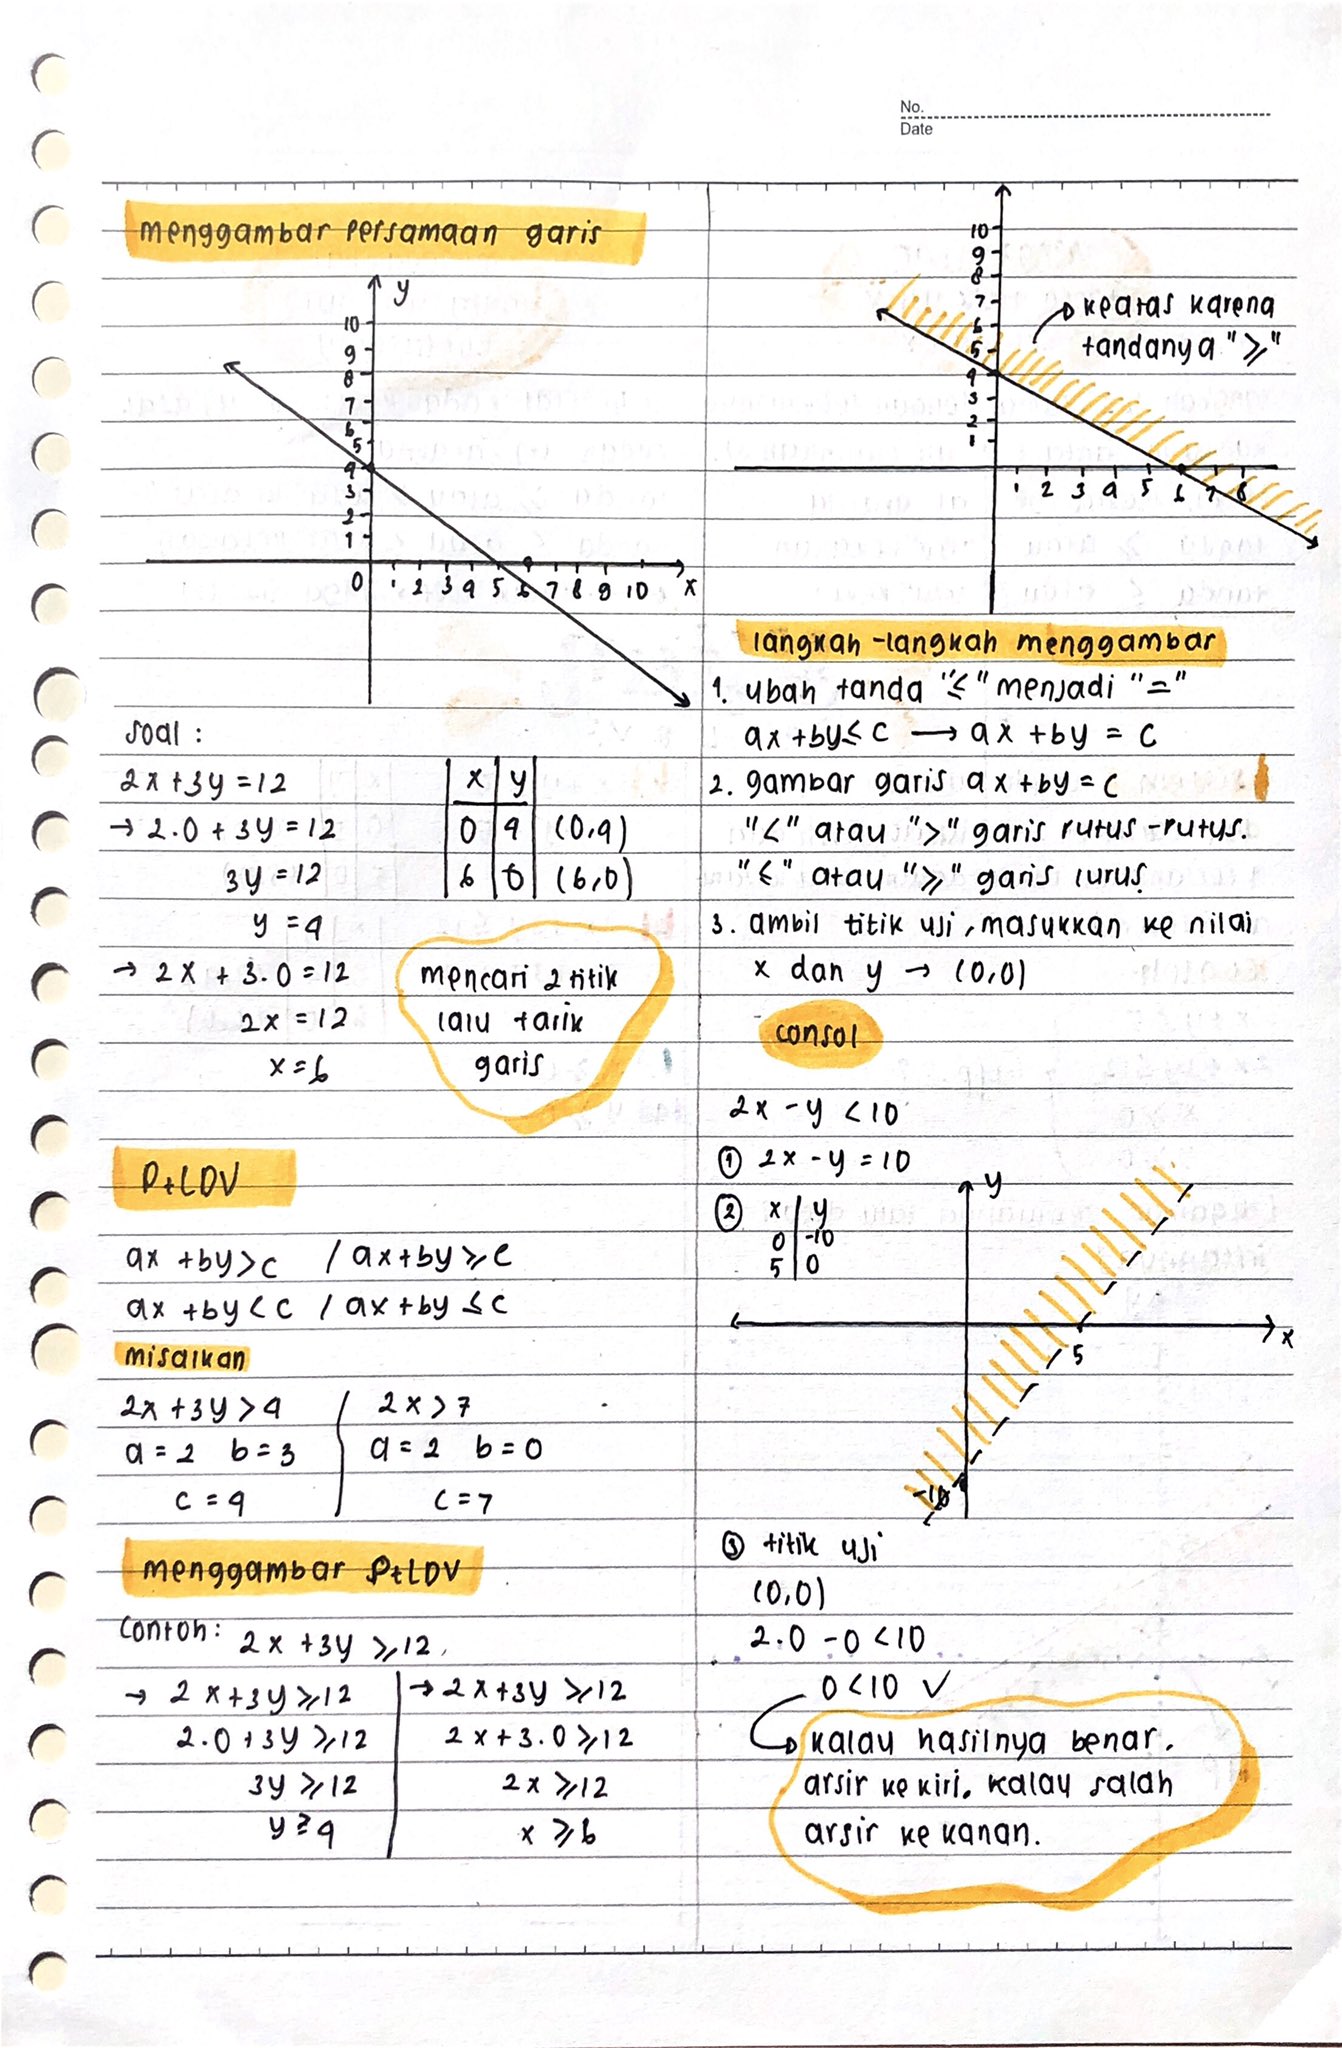 No.
Date
menggambar persamaan garis
y
10
9
8
7
6
5
4
3
2
1
0 1 2 3 4 5 6 7 8 9 10 x
soal :
2x + 3y = 12
→ 2.0 + 3y = 12
3y = 12
y = 4
→ 2x + 3.0 = 12
2x = 12
x = 6
x y
0 4 (0,4)
6 0 (6,0)
mencari 2 titik
lalu tarik
garis
PtLDV
ax + by > c / ax + by ≥ c
ax + by < c / ax + by ≤ c
misalkan
2x + 3y > 4
a = 2 b = 3
c = 4
2x > 7
a = 2 b = 0
c = 7
menggambar PtLDV
contoh: 2x + 3y ≥ 12
→ 2x + 3y ≥ 12
2.0 + 3y ≥ 12
3y ≥ 12
y ≥ 4
→ 2x + 3y ≥ 12
2x + 3.0 ≥ 12
2x ≥ 12
x ≥ 6
10
9
8
7
6
5
4
3
2
1
1 2 3 4 5 6 7 8
keatas karena
tandanya "≥"
langkah - langkah menggambar
1. ubah tanda "≤" menjadi "="
ax + by ≤ c → ax + by = c
2. gambar garis ax + by = c
"<" atau ">" garis putus - putus.
"≤" atau "≥" garis lurus.
3. ambil titik uji, masukkan ke nilai
x dan y → (0,0)
consol
2x - y < 10
① 2x - y = 10
② x y
0 -10
5 0
y
x
5
-10
③ titik uji
(0,0)
2.0 - 0 < 10
0 < 10 ✓
kalau hasilnya benar.
arsir ke kiri. kalau salah
arsir ke kanan.